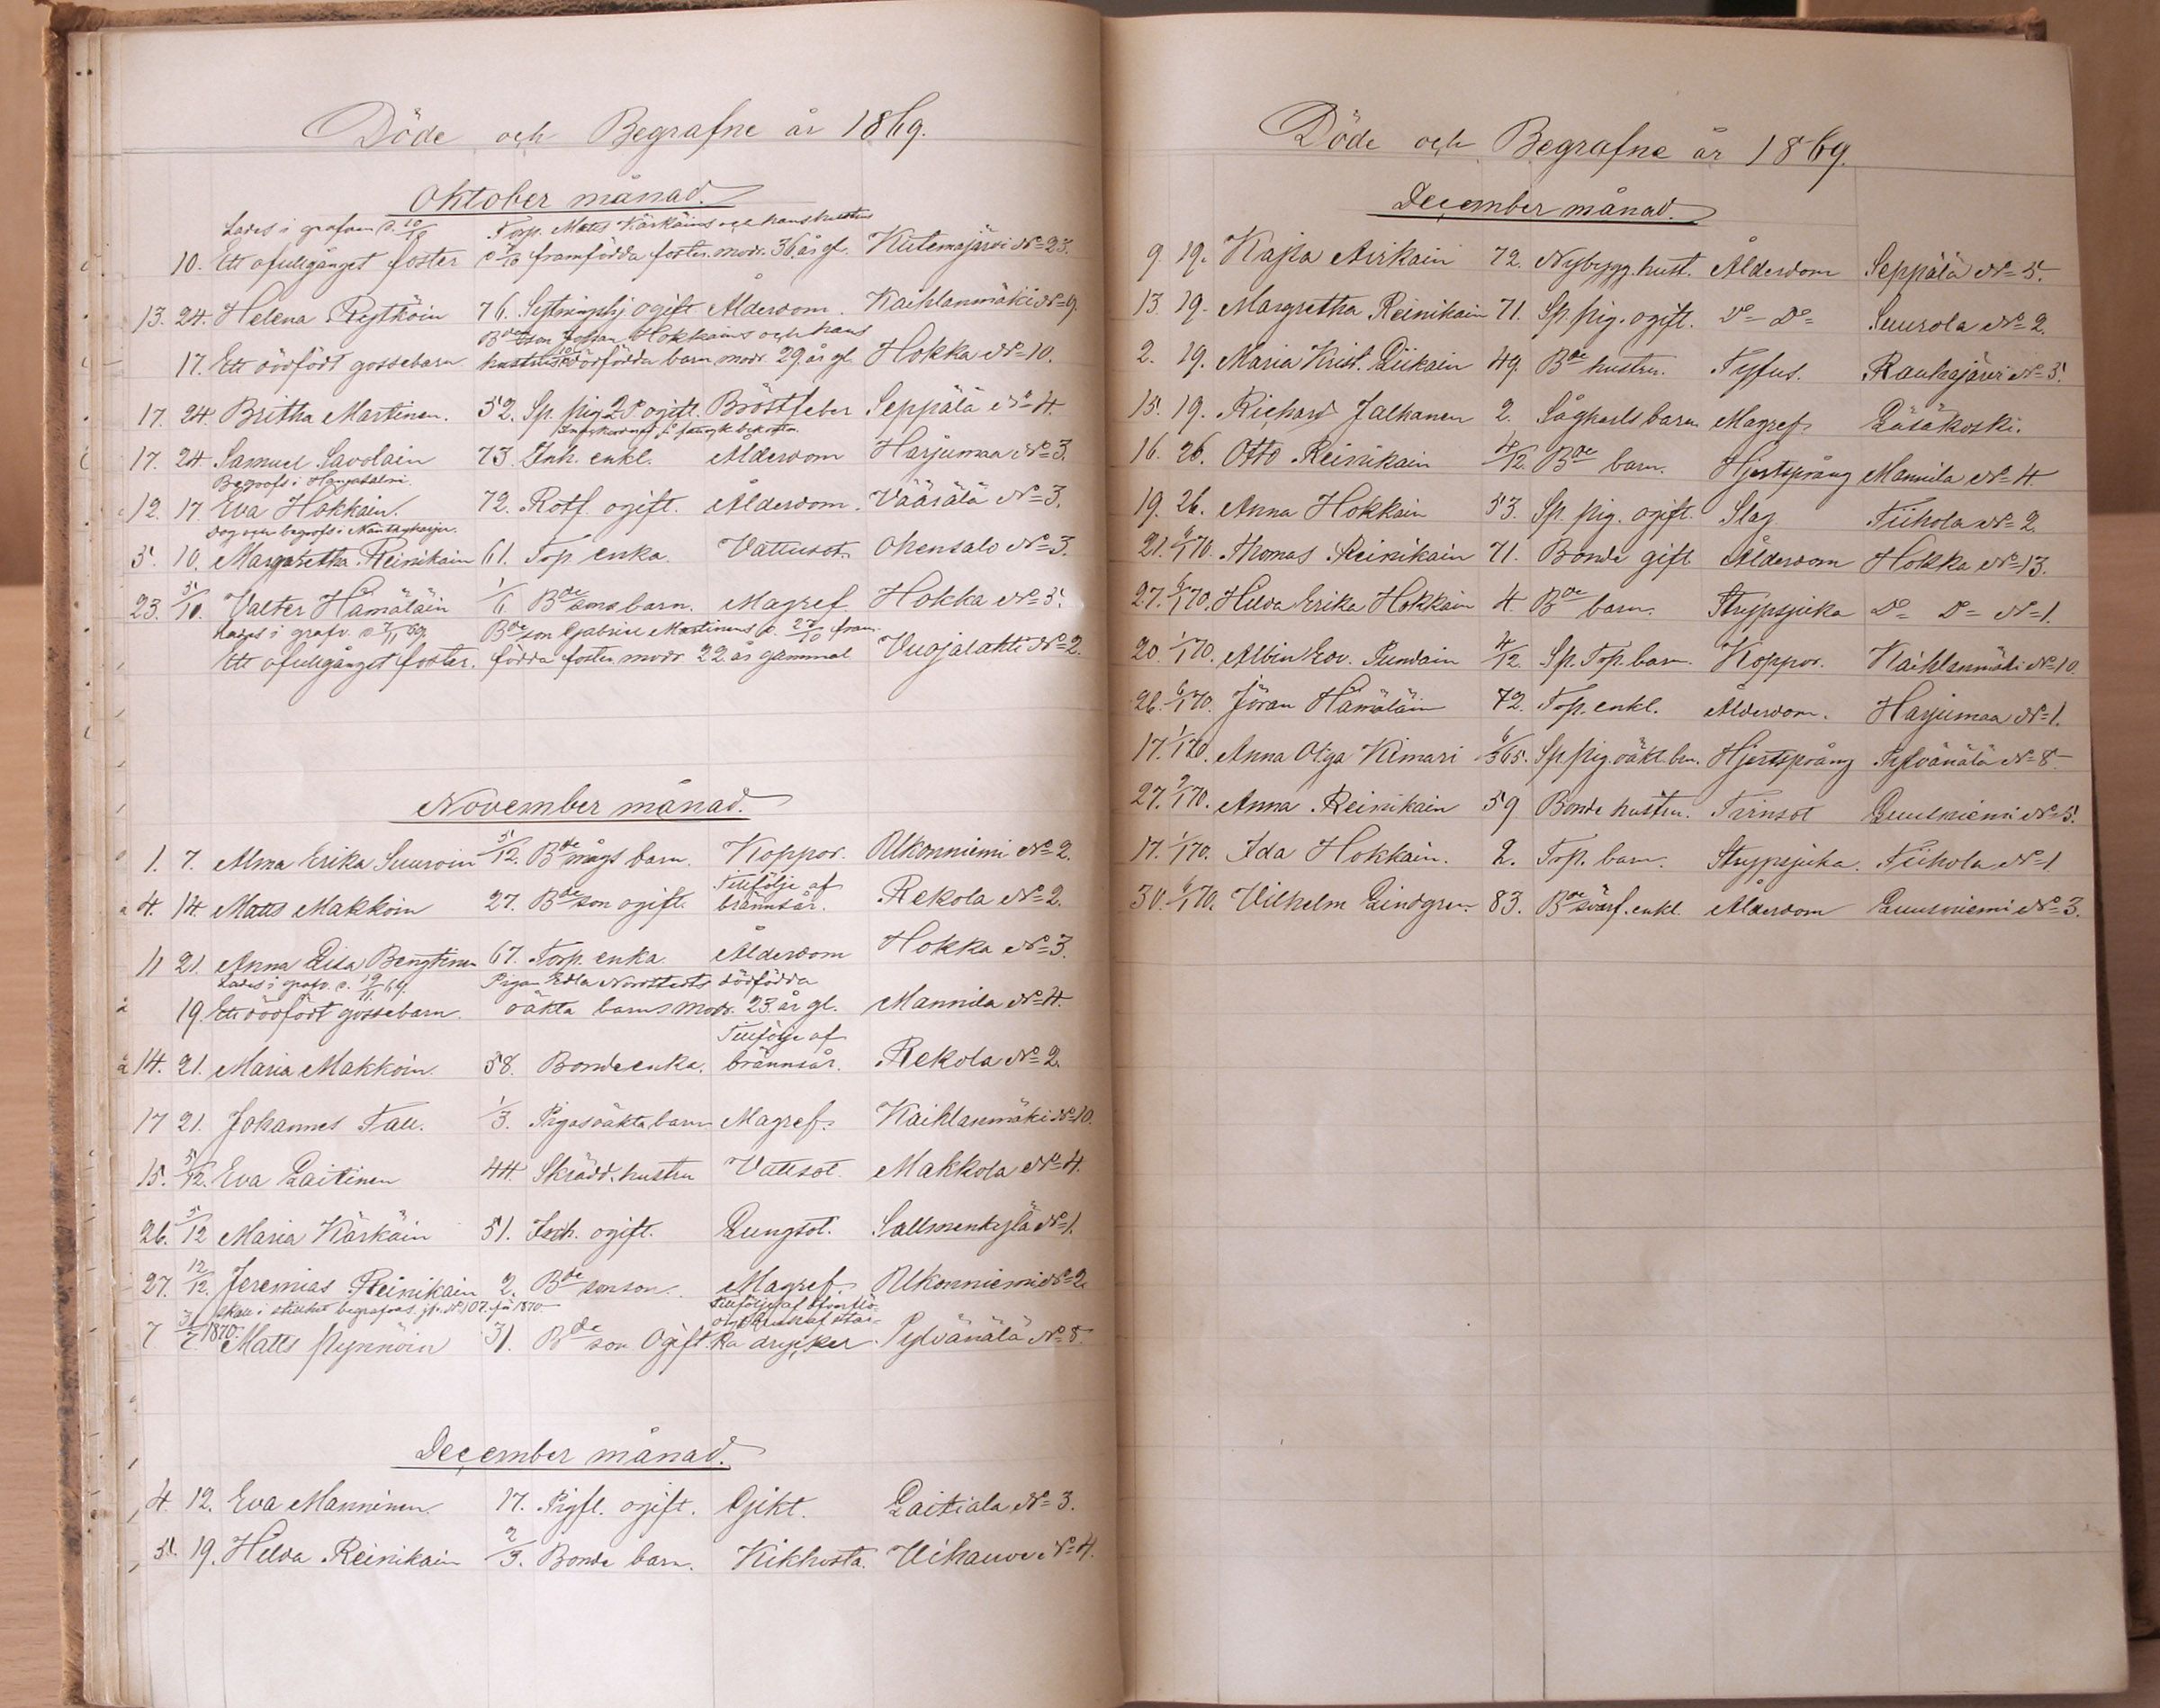 Döde och Begrafne år 1869.
Oktober månad.
Lades i grafven d. 10/10 Torp. Matts Kärkäins och hans hustrus
10. Ett ofullgånget foster framfödda foster. modr. 36 år gl. Kutemajärvi No 23.
13. 24. Helena Rytköin 76. ogift Ålderdom. Kaihlanmäki No 9.
Bde son Johan Hokkains och hans
17. Ett dödfödt gossebarn hustrus dödfödda barn modr. 29 år gl. Hokka No 10.
17. 24. Britha Martinen. 52. Sp. pig. ogift. Bröstfeber Seppälä No 4.
17. 24. Samuel Savolain 73. Inh. enkl. Ålderdom Harjumaa No 3.
Begrofs i Hangasalmi.
12. 17. Eva Hokkain. 72. Rotf. ogift. Ålderdom. Väärälä No 3.
Dog och begrofs i Kantasharju.
5. 10. Margaretha Reinikain 61. Torp. enka. Vattusot. Ohensalo No 3.
23. 31/10. Valter Hämäläin 1/6 Bde sons barn. Magref. Hokka No 3.
Lades i grafv. d. 7/11 69. Bde son Gabriel Martinens d. 27/10 fram-
Ett ofullgånget foster. födda foster, modr. 22 år gammal Vuojalahti No 2.
November månad.
1. 7. Alma Erika Suuroin 5/12. Bde mågs barn. Koppor. Ukonniemi No 2.
4. 14. Matts Makkoin 27. Bde son ogift. Tillfölje af brännsår. Rekola No 2.
11 21. Anna Lisa Bengtinen 67. Torp. enka. Ålderdom Hokka No 3.
Lades i grafv. d. 19/11 69. Pigan Edla Nordstedts dödfödda
19. Ett dödfödt gossebarn. oäkta barns modr. 23 år gl. Mannila No 4.
14. 21. Maria Makkoin. 58. Bonde enka. Tillfölje af brännsår. Rekola No 2.
17 21. Johannes Tall. 1/3. Pigas oäkta barn Magref. Kaihlanmäki No 10.
15. 5/12. Eva Laitinen 44. Skrädd. hustru Vattsot Makkola No 4.
26. 5/12 Maria Kärkäin 51. Inh. ogift. Lungsot. Sallmenkylä No 1.
27. 12/12. Jeremias Reinikain 2. Bde sonson. Magref. Ukonniemi No 2.
Skall i stillhet begrafvas. No 107. 1870. Tillfölje af
7. 1870. Matts Pynnöin 31. Bde son Ogift. ka drycker Pylvänälä No 8.
December månad.
4. 12. Eva Manninen. 17. Pigfl. ogift. Gikt. Laitiala No 3.
5. 19. Hilda Reinikain 2/3. Bonde barn. Kikhosta. Uihauvo No 4.
Döde och Begrafne år 1869.
December månad.
9. 19. Kajsa Airikain 72. Nybygg. hust. Ålderdom Seppälä No 5.
13. 19. Margretha Reinikain 71. Sp. pig. ogift. Do Do Suurola No 2.
2. 19. Maria Krist. Liikain 49. Bde hustru. Tyfus. Rauhajärvi No 3.
15. 19. Richard Jalkanen 2. Sågkarls barn Magref. Läsäkoski.
16. 26. Otto Reinikain 4/12. Bde barn. Hjertsprång Mannila No 4.
19. 26. Anna Hokkain 53. Sp. pig. ogift. Slag. Tiihola No 2.
21. 6/1 70. Thomas Reinikain 71. Bonde gift Ålderdom Hokka No 13.
27. 6/1 70. Hilda Erika Hokkain 4. Bde barn. Strypsjuka Do Do No 1.
20. 1/1 70. Albin Edv. Pundain 4/12. Sp. Torp. barn. Koppor. Kaihlanmäki No 10.
26. 6/1 70. Jöran Hämäläin 72. Torp. enkl. Ålderdom. Harjumaa No 1.
17. 1/1 70. Anna Olga Kimari Sp. pig. oäkt. brn. Hjertsprång Pylvänälä No 8.
27. 9/1 70. Anna Reinikain 59 Bonde hustru. Tvinsot Luusniemi No 5.
17. 1/1 70. Ida Hokkain. 2. Torp. barn. Strypsjuka. Tiihola No 1
30. 6/1 70. Vilhelm Lindgren. 83. Bde svärf. enkl. Ålderdom Luusniemi No 3.